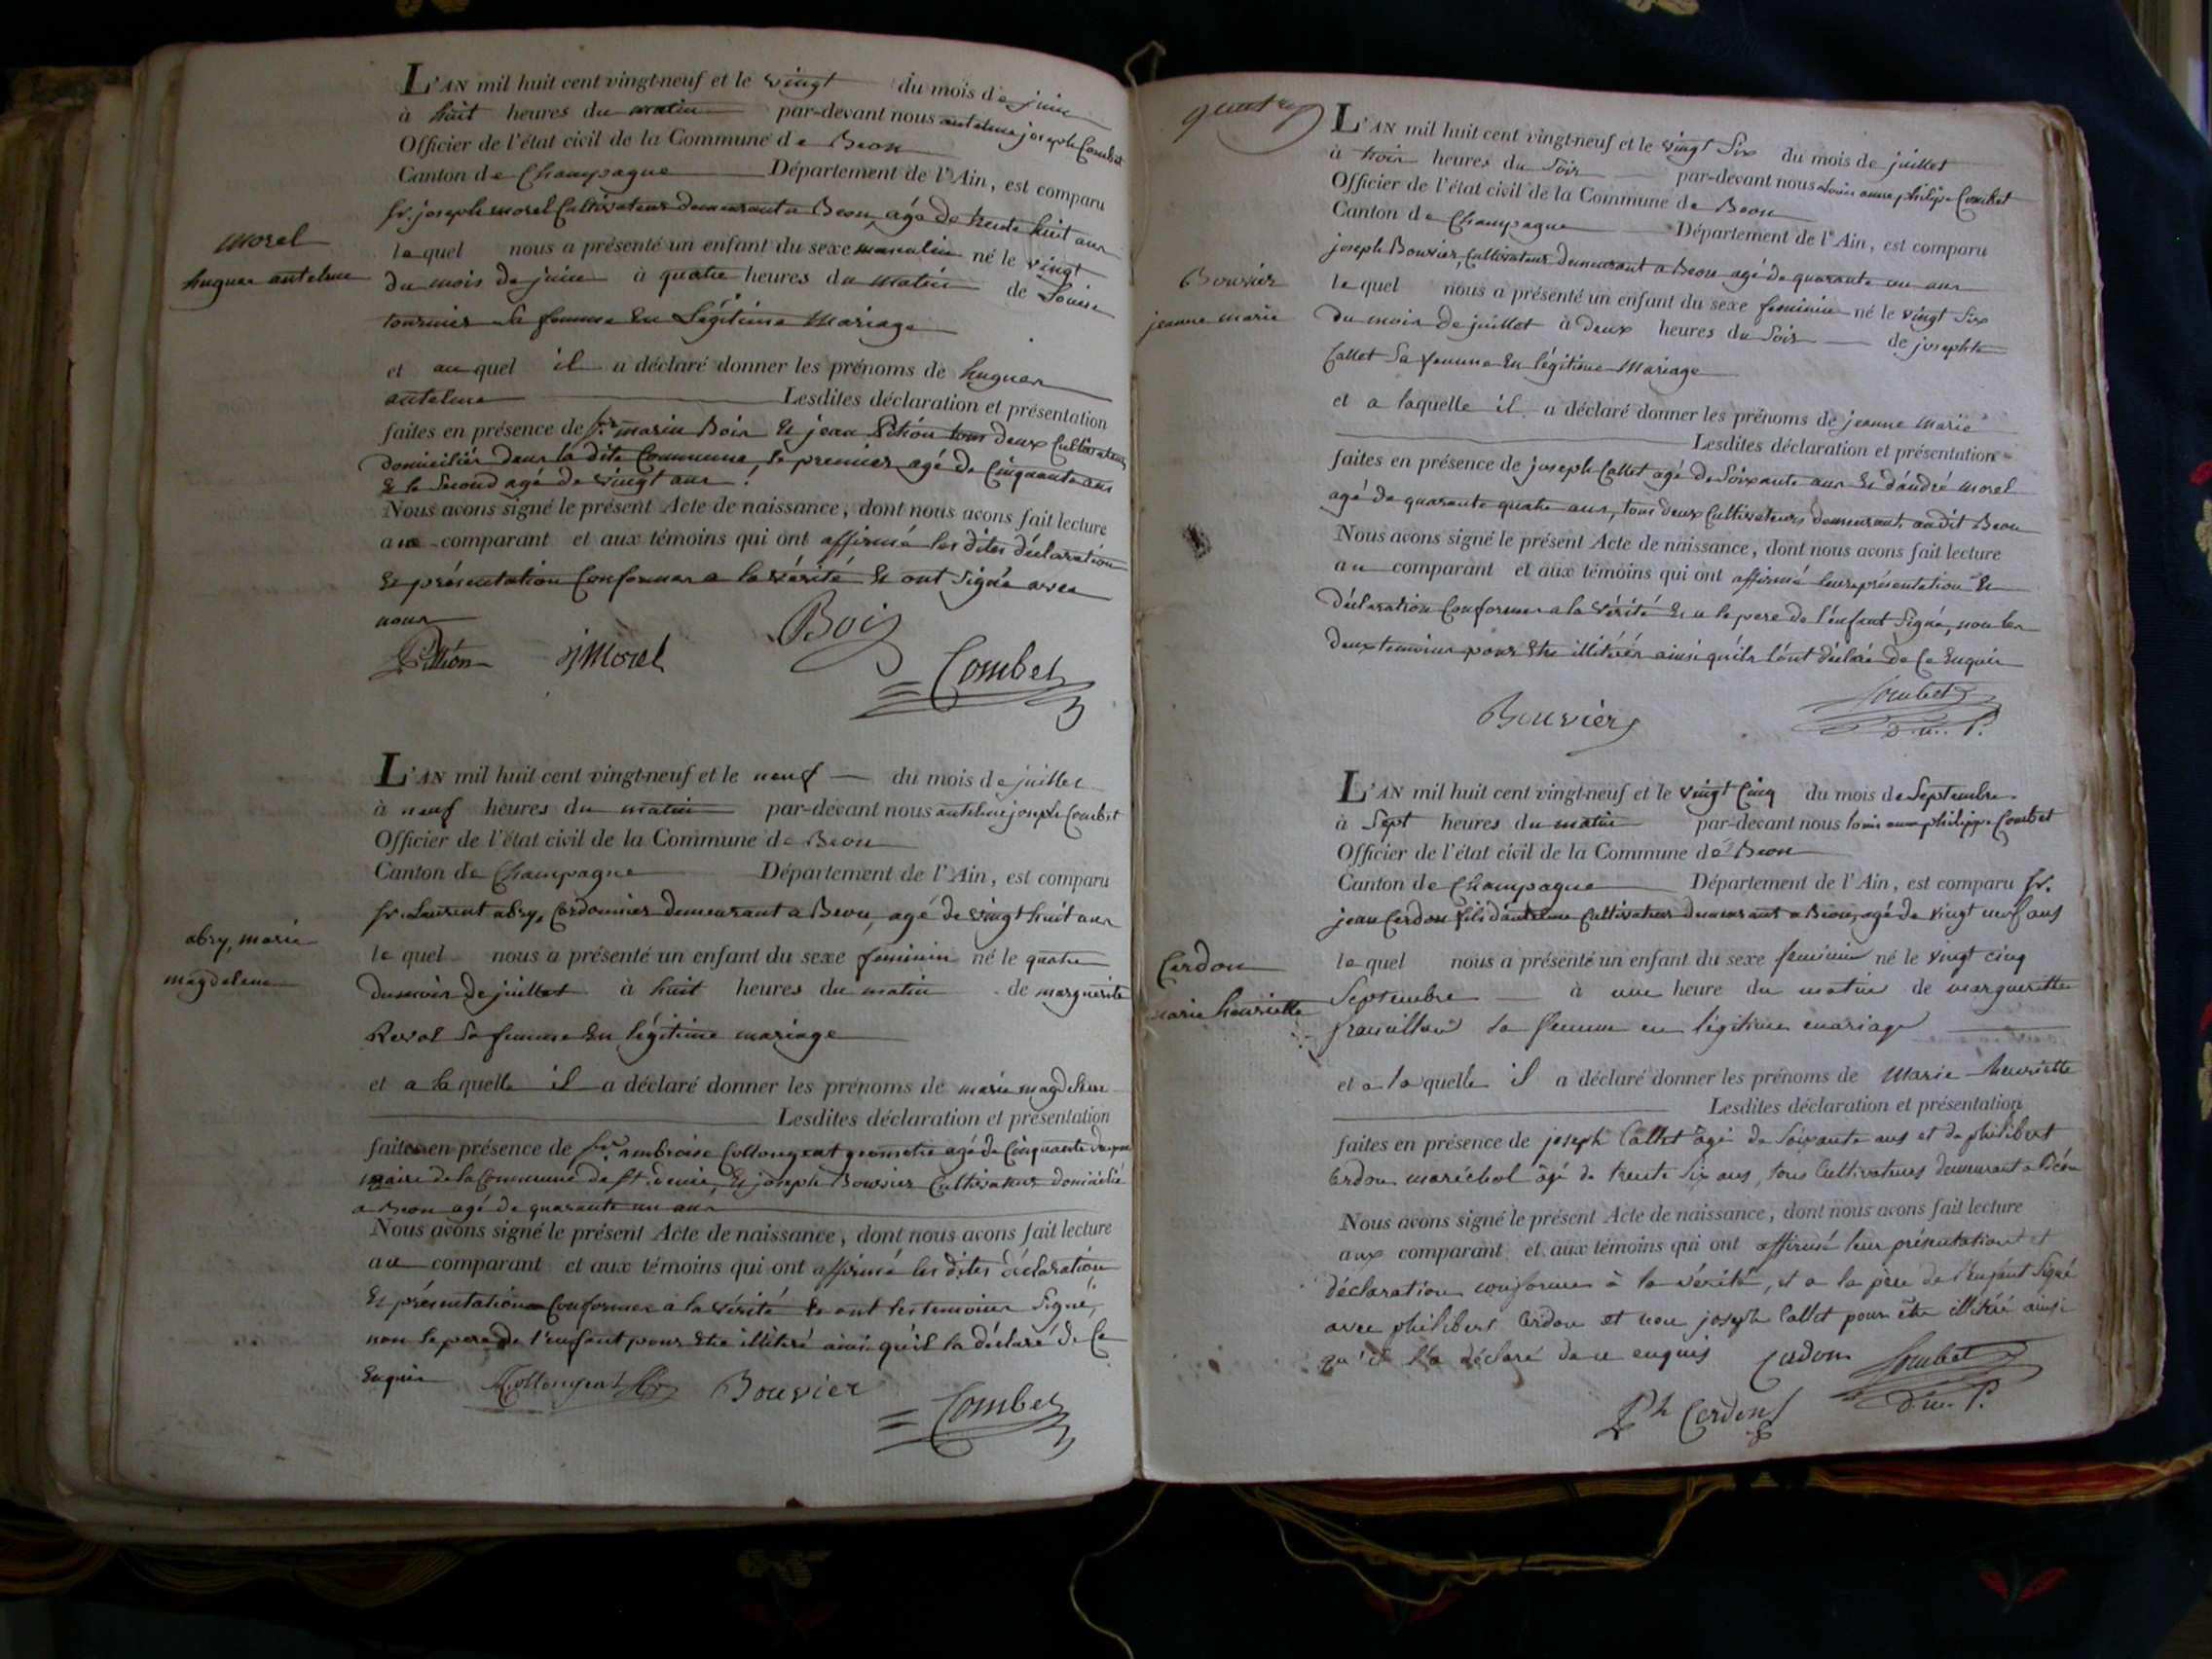 L'AN mil huit cent vingt-neuf et le vingt du mois de juin
à huit heures du matin par-devant nous antelme joseph Combet
Officier de l'état civil de la Commune de Beon
Canton de Champagne Département de l'Ain, est comparu
sr. joseph morel Cultivateur demeurant a Beon, agé de trente huit ans
morel
hugues antelme
le quel nous a présenté un enfant du sexe masculin né le vingt
du mois de juin à quatre heures du matin de Louise
tournier sa femme En Légitime Mariage
et au quel il a déclaré donner les prénoms de hugues
antelme Lesdites déclaration et présentation
faites en présence de srs marin Bois Et jean Pithion tous deux Cultivateurs
domiciliés dans la dite Commune, le premier agé de Cinquante ans
Et le Second agé de vingt ans.
Nous avons signé le présent Acte de naissance, dont nous avons fait lecture
au comparant et aux témoins qui ont affirmé les dites déclaration
Et présentation Conformes a la vérité Et ont signé avec
nous
Pithion jMorel Bois
Combet
L'AN mil huit cent vingt-neuf et le neuf du mois de juillet
à neuf heures du matin par-devant nous antelme joseph Combet
Officier de l'état civil de la Commune de Beon
Canton de Champagne Département de l'Ain, est comparu
sr. Laurent abry, Cordonnier demeurant a Beon, agé de vingt huit ans
abry, marie
magdeleine
le quel nous a présenté un enfant du sexe feminin né le quatre
du mois de juillet à huit heures du matin de marguerite
Revol Sa femme En légitime mariage
et a la quelle il a déclaré donner les prénoms de marie magdeleine
Lesdites déclaration et présentation
faites en présence de sr. ambroise Collongeat geometre agé de Cinquante
maire de la Commune de St. denis, Et joseph Bouvier Cultivateur domicilié
a Beon agé de quarante un ans
Nous avons signé le présent Acte de naissance, dont nous avons fait lecture
au comparant et aux témoins qui ont affirmé les dites déclaration
Et présentation Conformes a la vérité Et ont les temoins Signé,
non le pere de l'enfant pour Etre illitéré ainsi qu'il la déclaré de Ce
Enquis Collongeat Bouvier
Combet
L'AN mil huit cent vingt-neuf et le vingt Six du mois de juillet
à trois heures du Soir par-devant nous Louis anne philipe Combet
Officier de l'état civil de la Commune de Beon
Canton de Champagne Département de l'Ain, est comparu
joseph Bouvier, Cultivateur demeurant a Beon agé de quarante un ans
Bouvier
jeanne marie
le quel nous a présenté un enfant du sexe feminin né le vingt Six
du mois de juillet à deux heures du Soir de josephte
Callet Sa femme En légitime Mariage
et a laquelle il a déclaré donner les prénoms de jeanne marie
Lesdites déclaration et présentation
faites en présence de joseph Callet agé de Soixante ans Et d'andré morel
agé de quarante quatre ans, tous deux Cultivateurs demeurants audit Beon
Nous avons signé le présent Acte de naissance, dont nous avons fait lecture
au comparant et aux témoins qui ont affirmé leurs présentation Et
déclaration Conformes a la vérité Et a le pere de l'enfant Signé, non les
deux temoins pour Etre illitérés ainsi qu'ils l'ont déclaré de Ce Enquis
Bouvier Combet
L'AN mil huit cent vingt-neuf et le vingt Cinq du mois de Septembre
à Sept heures du matin par-devant nous louis anne philippe Combet
Officier de l'état civil de la Commune de Beon
Canton de Champagne Département de l'Ain, est comparu sr.
jean Cerdon fils d'antelme Cultivateur demeurant a Beon, agé de vingt neuf ans
Cerdon
marie henriette
le quel nous a présenté un enfant du sexe feminin né le vingt cinq
Septembre à une heure du matin de margueritte
sa femme en légitime mariage
et a la quelle il a déclaré donner les prénoms de Marie henriette
Lesdites déclaration et présentation
faites en présence de joseph Callet agé de Soixante ans et de philibert
Cerdon maréchal âgé de trente Six ans, tous Cultivateurs demeurant a Béon
Nous avons signé le présent Acte de naissance, dont nous avons fait lecture
aux comparant et aux témoins qui ont affirmé leur présentation et
déclaration conformes à la vérité, et a le père de l'enfant Signé
avec philibert Cerdon et non joseph Callet pour être illitéré ainsi
qu'il l'a déclaré de ce enquis Cerdon Combet
Ph Cerdon